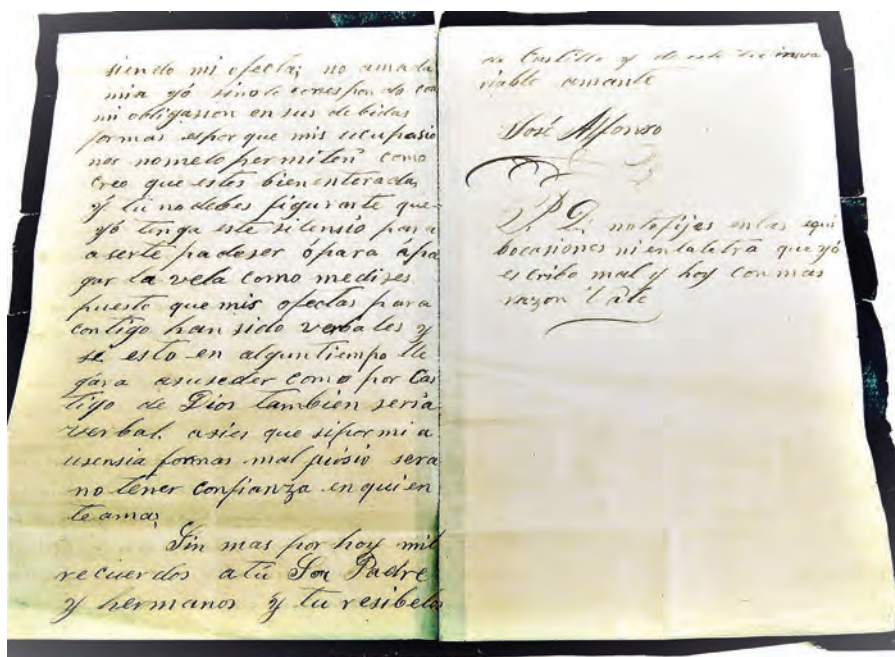 siendo mi ofecta; no amada
mia yó sino le corespondo con
mi obligasion en sus debidas
formas esporque mis ucupasio
nes nomelo permiten como
creo que estes bienenterada,
y tú nodebes figurarte que
yó tenga este silensio para
aserte padeser ó para ápa
gar la vela como medises
puesto que mis ofectas para
contigo han sido verbales y
si esto en algun tiempo lle
gára asuseder como por Cas
tigo de Dios tambien seria
verbal. asies que sipormi a
usensia formas mal juisio sera
no tener confianza en quien
teama,
Sin mas por hoy mil
recuerdos atú Sor Padre
y hermanos y tu resibelos
de Castillo y de este tu inva
riable amante
José Alfonso
P. D. notefijes enlas equi
bocasiones ni enlaletra que yó
escribo mal y hoy con mas
razon